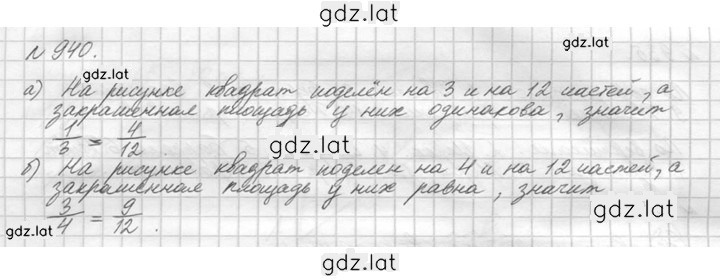 gdz.lat
№ 940.
gdz.lat
gdz.lat
а) На рисунке квадрат поделён на 3 и на 12 частей, а
закрашенная площадь у них одинакова, значит
1/3 = 4/12
gdz.lat
б) На рисунке квадрат поделен на 4 и на 12 частей, а
закрашенная площадь у них равна, значит
3/4 = 9/12.
gdz.lat
gdz.lat
gdz.lat